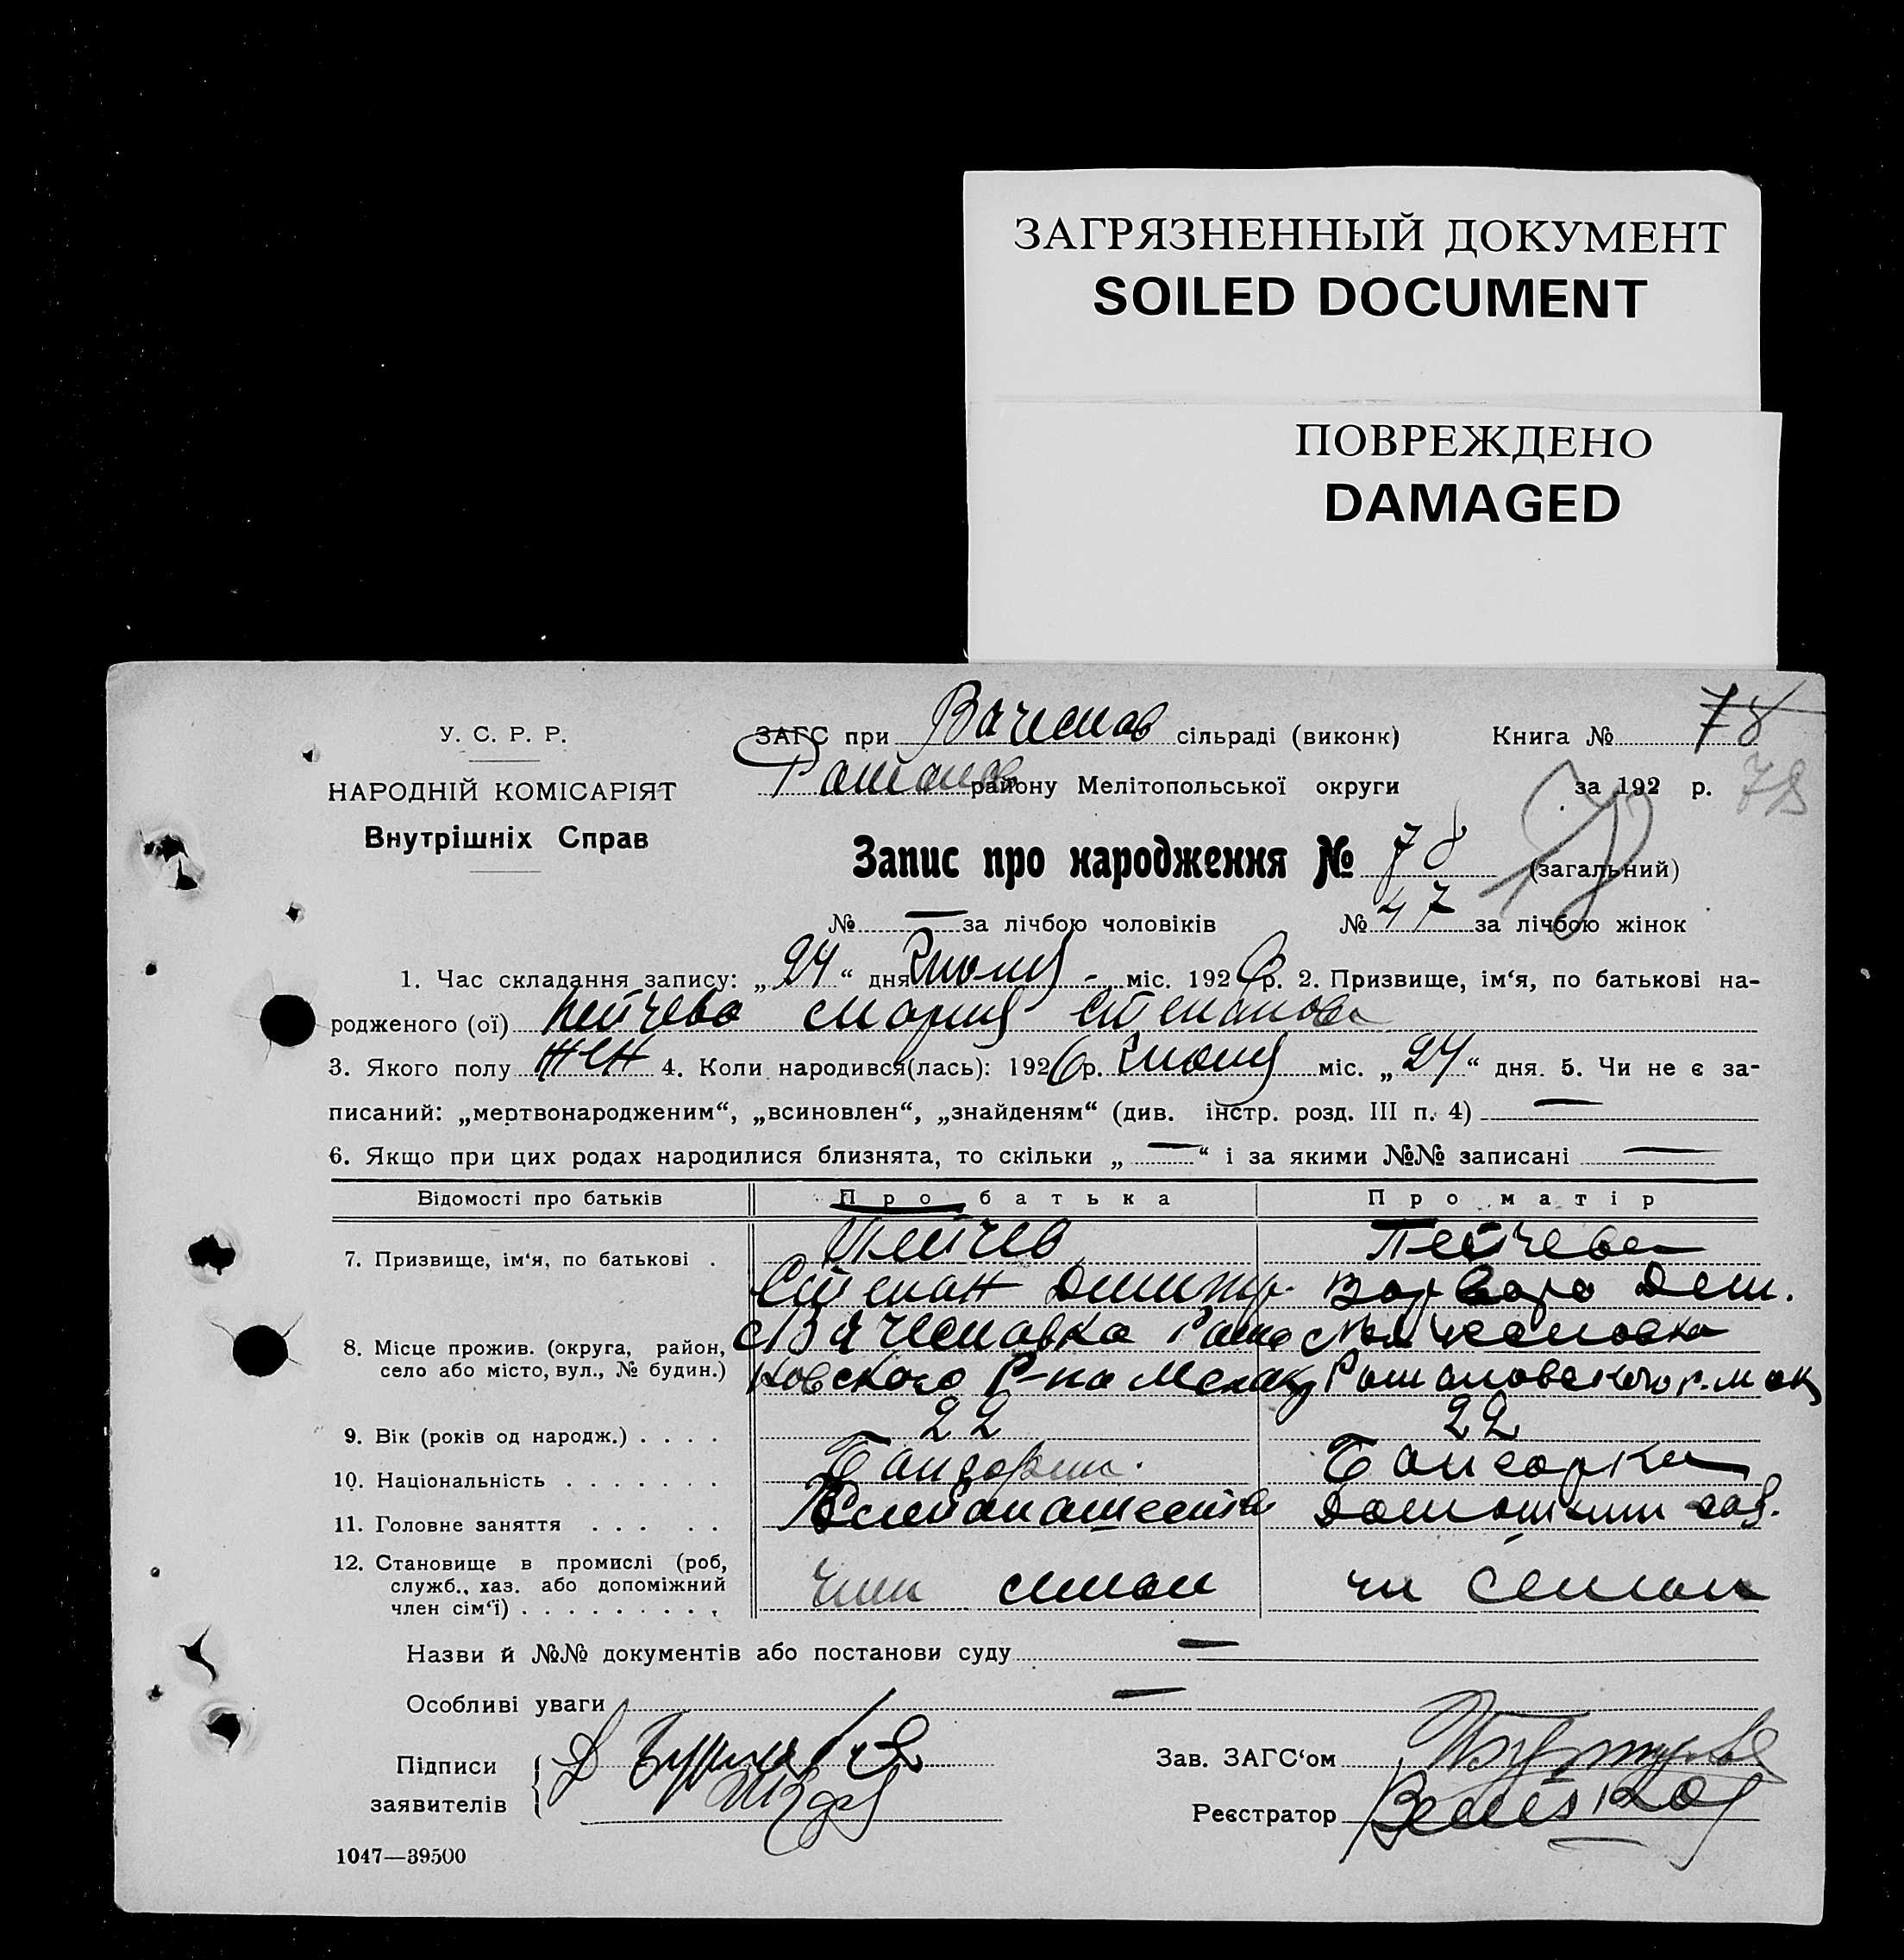 ЗАГРЯЗНЕННЫЙ ДОКУМЕНТ
SOILED DOCUMENT
ПОВРЕЖДЕНО
DAMAGED
У. С. Р. Р.
НАРОДНІЙ КОМІСАРІЯТ
Внутрішніх Справ
ЗАГС при Вячеслав сільраді (виконк) Книга № 78
Роман району Мелітопольської округи за 192 р. 78
Запис про народження № 78 (загальний)
№ — за лічбою чоловіків № 47 за лічбою жінок
1. Час складання запису: „24“ дня Июля - міс. 1926 р. 2. Призвище, ім‘я, по батькові на-
родженого (ої) Пейчева Мария Степанова
3. Якого полу жен 4. Коли народився(лась): 1926 р. Июля міс. „24“ дня. 5. Чи не є за-
писаний: „мертвонародженим“, „всиновлен“, „знайденям“ (див. інстр. розд. III п. 4) —
6. Якщо при цих родах народилися близнята, то скільки „—“ і за якими №№ записані —
Відомості про батьків Про батька Про матір
7. Призвище, ім‘я, по батькові . Пейчев Пейчева
Степан Димитр. Варвара Дем.
8. Місце прожив. (округа, район, с Вячеславка Рома с Вячеславка
село або місто, вул., № будин.) новского Р-на Мел окр Романовского р. м окр
9. Вік (років од народж.) . . . . 22 22
10. Національність . . . . . . . Болгарин. Болгарка
11. Головне заняття . . . . . Домашним
12. Становище в промислі (роб,
служб., хаз. або допоміжний член семьи чл семьи
член сім‘ї) . . . . . . . . .
Назви й №№ документів або постанови суду —
Особливі уваги —
Підписи
заявителів
Зав. ЗАГС‘ом
Реєстратор
1047—39500